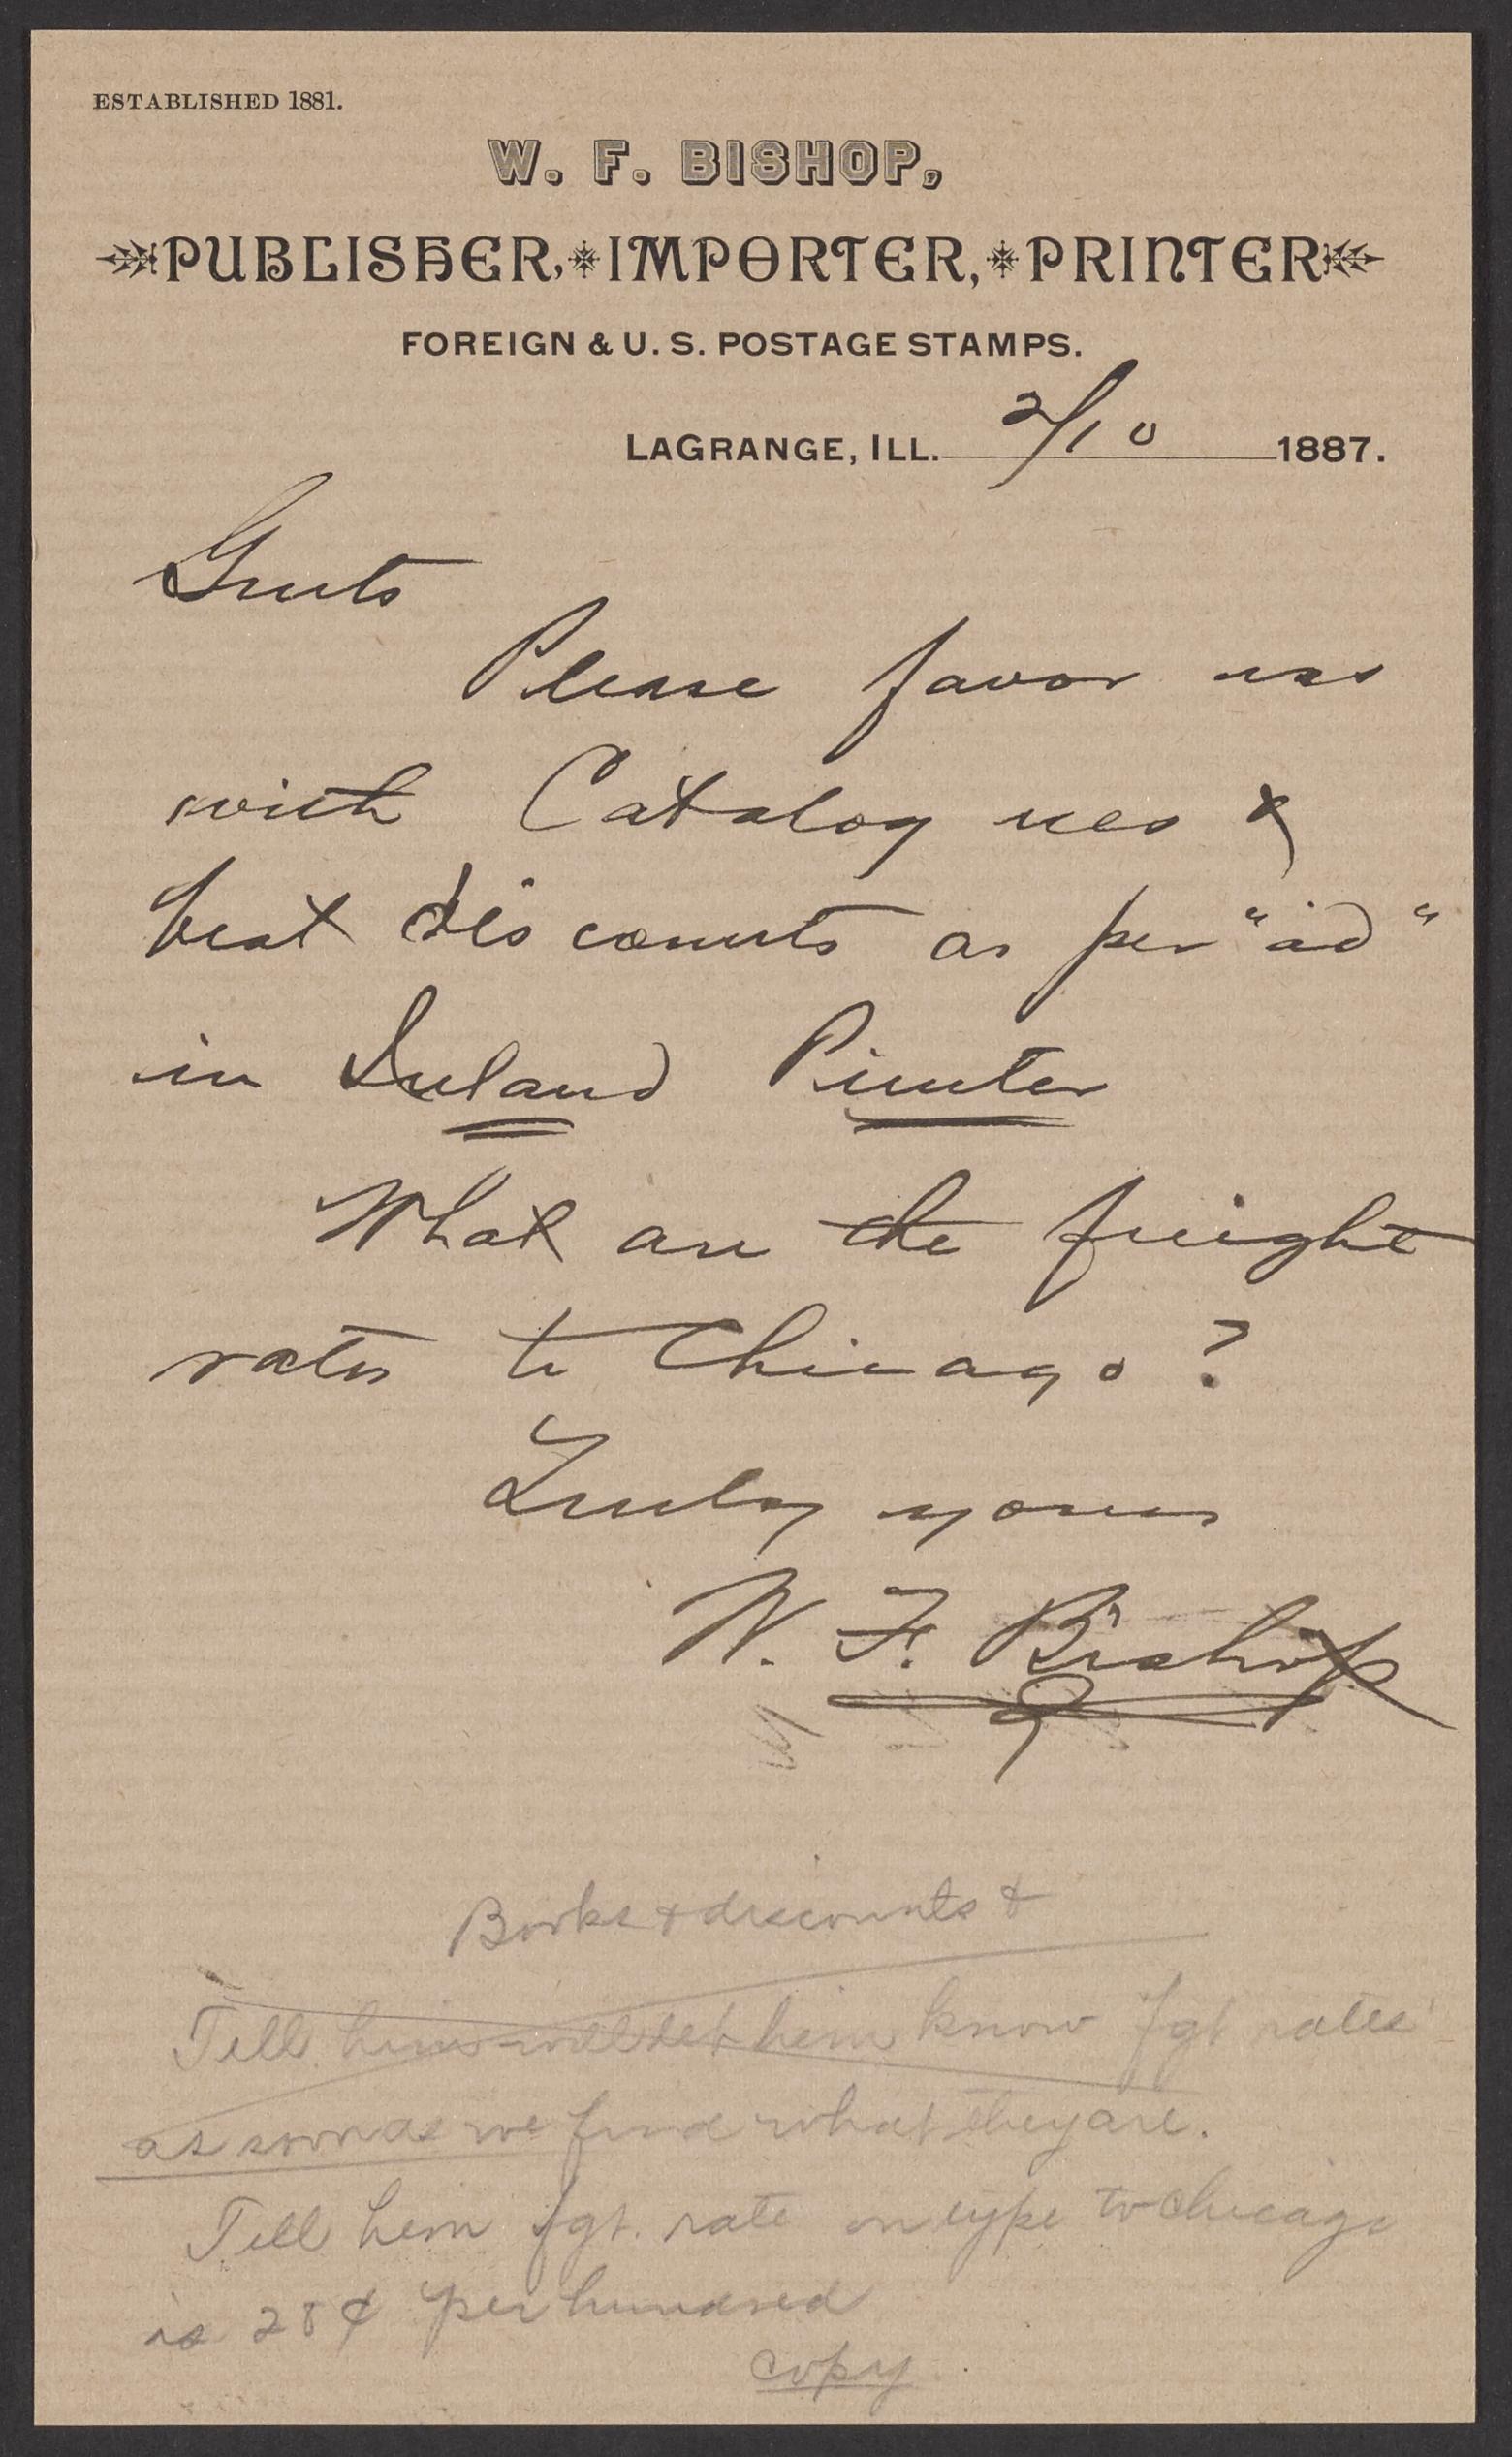 ESTABLISHED 1881.
W. F. BISHOP,
PUBLISHER, IMPORTER, PRINTER
FOREIGN & U. S. POSTAGE STAMPS.
LAGRANGE, ILL. 2/10 1887.
Gents
Please favor us
with Catalogues &
best discounts as per "ad"
in Inland Printer
What are the freight
rates to Chicago?
Truly yours
W. F. Bishop
Books & discounts &
Tell him will let him know fgt rates
as soon as we find what they are.
Tell him fgt. rate on type to Chicago
is 28¢ per hundred
copy